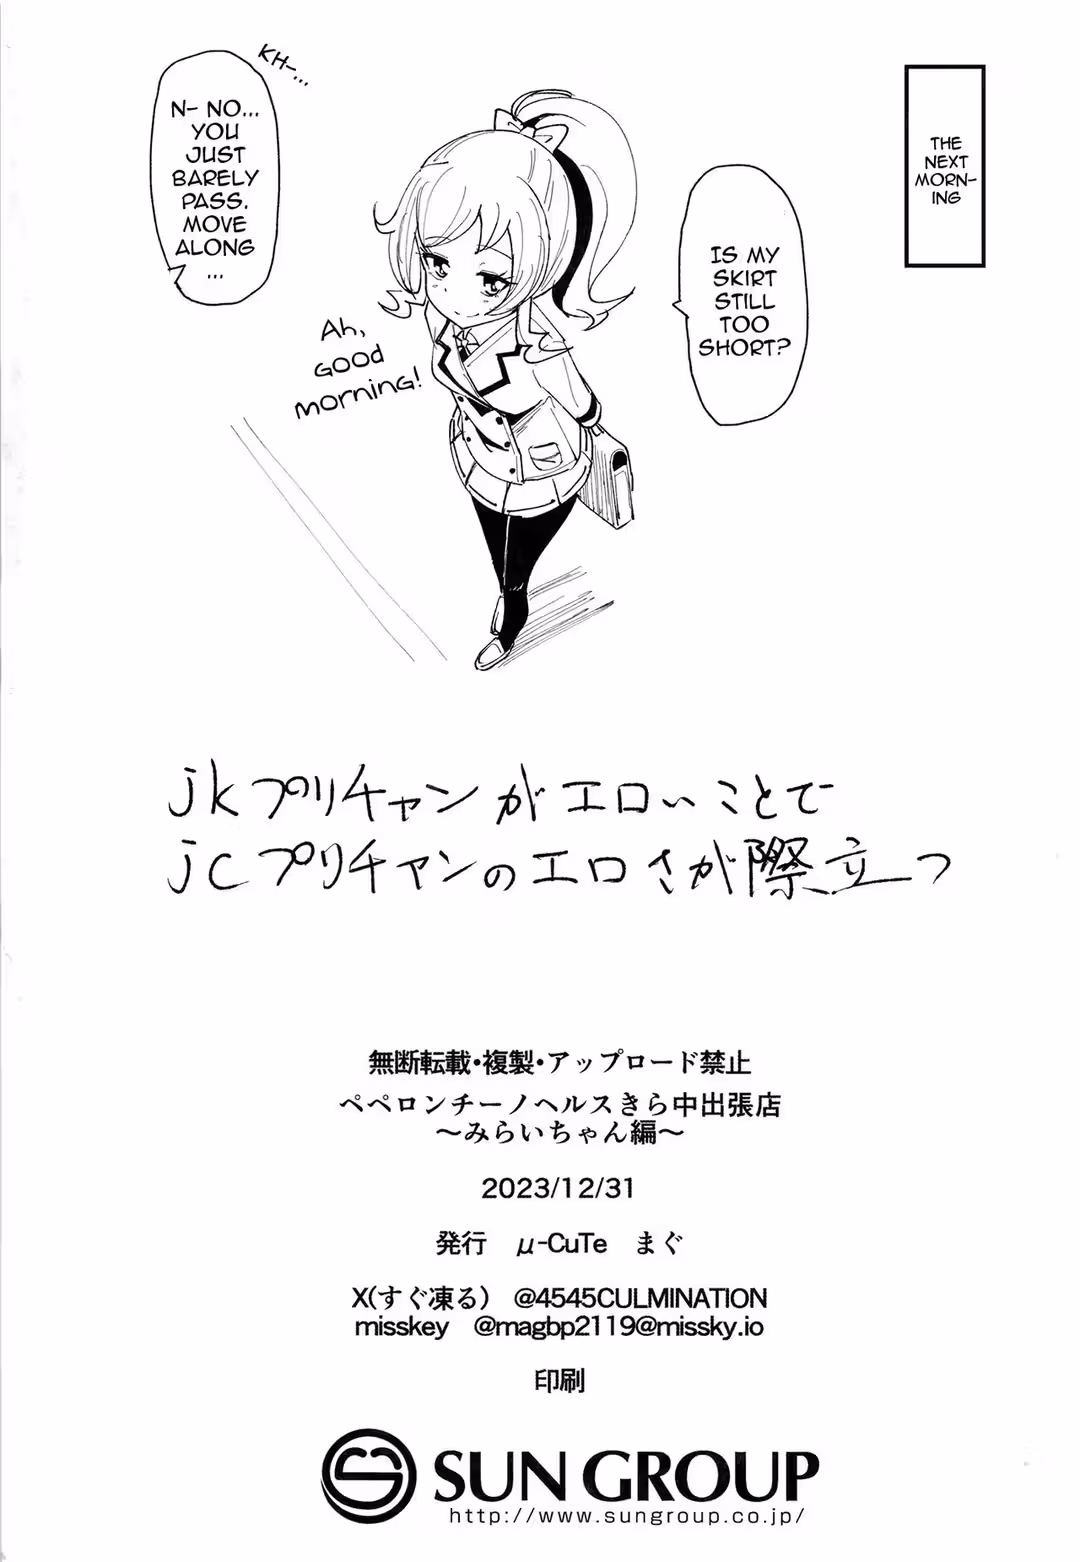 THE
NEXT
MORN-
ING
IS MY
SKIRT
STILL
TOO
SHORT?
Ah,
GOOD
MORNING!
KH-...
N- NO...
YOU
JUST
BARELY
PASS.
MOVE
ALONG
...
jkプリチャンがエロいことで
jcプリチャンのエロさが際立つ
無断転載・複製・アップロード禁止
ペペロンチーノヘルスきら中出張店
～みらいちゃん編～
2023/12/31
発行　μ-CuTe　まぐ
X(すぐ凍る)　@4545CULMINATION
misskey　@magbp2119@missky.io
印刷
SUN GROUP
http://www.sungroup.co.jp/